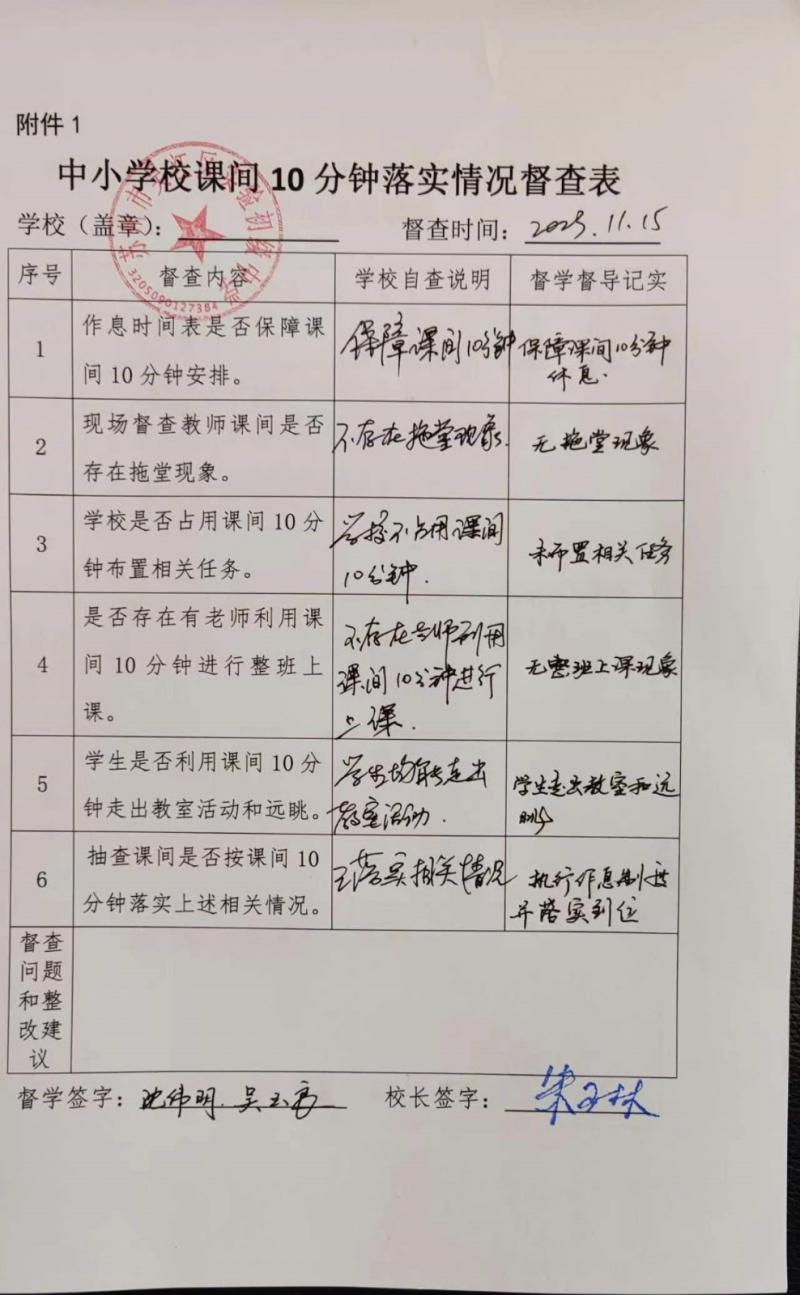 附件 1
中小学校课间 10 分钟落实情况督查表
学校（盖章）：
督查时间：2023.11.15
序号 督查内容 学校自查说明 督学督导记实
1
作息时间表是否保障课
间 10 分钟安排。
保障课间10分钟
保障课间10分钟
休息.
2
现场督查教师课间是否
存在拖堂现象。
不存在拖堂现象.
无拖堂现象
3
学校是否占用课间 10 分
钟布置相关任务。
学校不占用课间
10分钟.
未布置相关任务
4
是否存在有老师利用课
间 10 分钟进行整班上
课。
不存在老师利用
课间10分钟进行
上课.
无整班上课现象
5
学生是否利用课间 10 分
钟走出教室活动和远眺。
学生均能走出
教室活动.
学生走出教室和远
眺
6
抽查课间是否按课间 10
分钟落实上述相关情况。
落实相关情况
执行作息制度
并落实到位
督查
问题
和整
改建
议
督学签字：沈伟明. 吴玉
校长签字：朱玉林
3205090127384